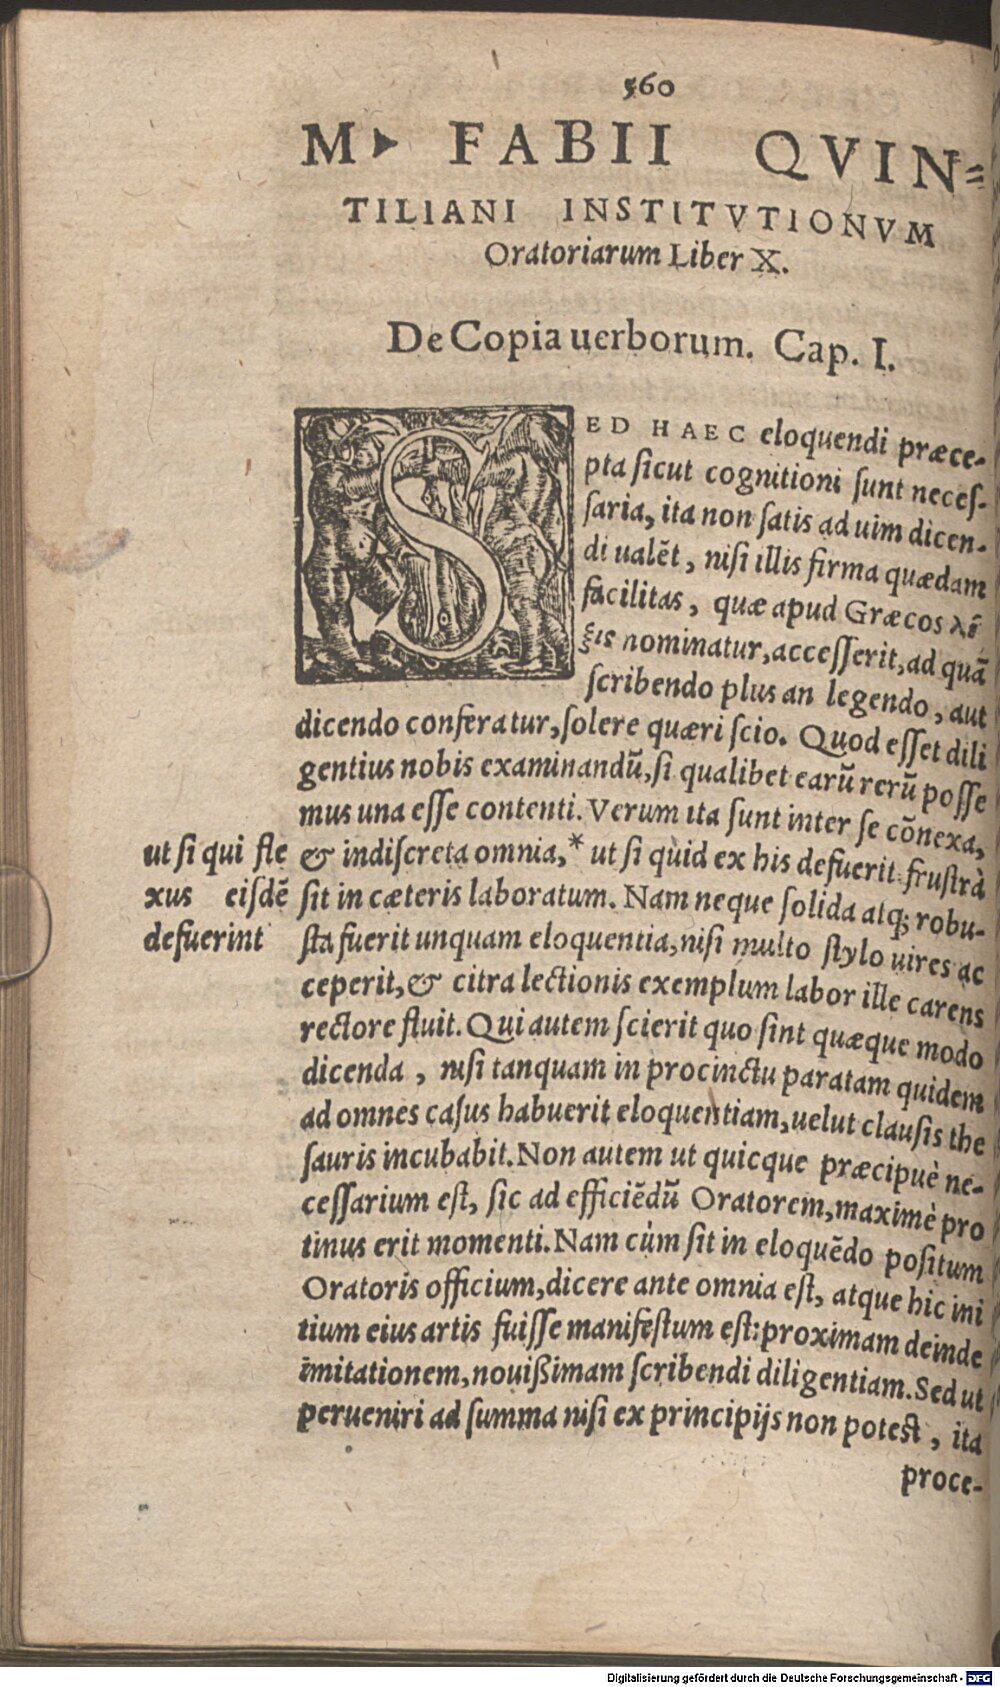 560
M. FABII QVIN=
TILIANI INSTITVTIONVM
Oratoriarum Liber X.
De Copia uerborum. Cap. I.
SED HAEC eloquendi præce-
pta sicut cognitioni sunt neces-
saria, ita non satis ad uim dicen-
di ualẽt, nisi illis firma quædam
facilitas, quæ apud Græcos λέ
ξις nominatur, accesserit, ad quã
scribendo plus an legendo, aut
dicendo conferatur, solere quæri scio. Quod esset dili
gentius nobis examinandũ, si qualibet earũ rerũ posse
mus una esse contenti. Verum ita sunt inter se cõnexa,
& indiscreta omnia,* ut si quid ex his defuerit frustrà
sit in cæteris laboratum. Nam neque solida atq; robu-
sta fuerit unquam eloquentia, nisi multo stylo uires ac
ceperit, & citra lectionis exemplum labor ille carens
rectore fluit. Qui autem scierit quo sint quæque modo
dicenda, nisi tanquam in procinctu paratam quidem
ad omnes casus habuerit eloquentiam, uelut clausis the
sauris incubabit. Non autem ut quicque præcipuè ne-
cessarium est, sic ad efficiẽdũ Oratorem, maximè pro
tinus erit momenti. Nam cùm sit in eloquẽdo positum
Oratoris officium, dicere ante omnia est, atque hic ini
tium eius artis fuisse manifestum est: proximam deinde
imitationem, nouißimam scribendi diligentiam. Sed ut
perueniri ad summa nisi ex principijs non potest, ita
proce-
ut si qui fle
xus eisdẽ
defuerint
Digitalisierung gefördert durch die Deutsche Forschungsgemeinschaft - DFG